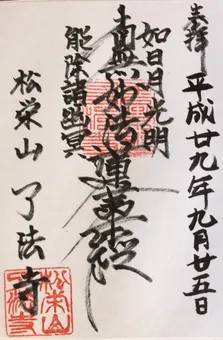 奉拝
平成廿九年九月廿五日
如日月光明
南無妙法蓮華経
能除諸幽冥
松栄山
了法寺
松栄山
了法寺